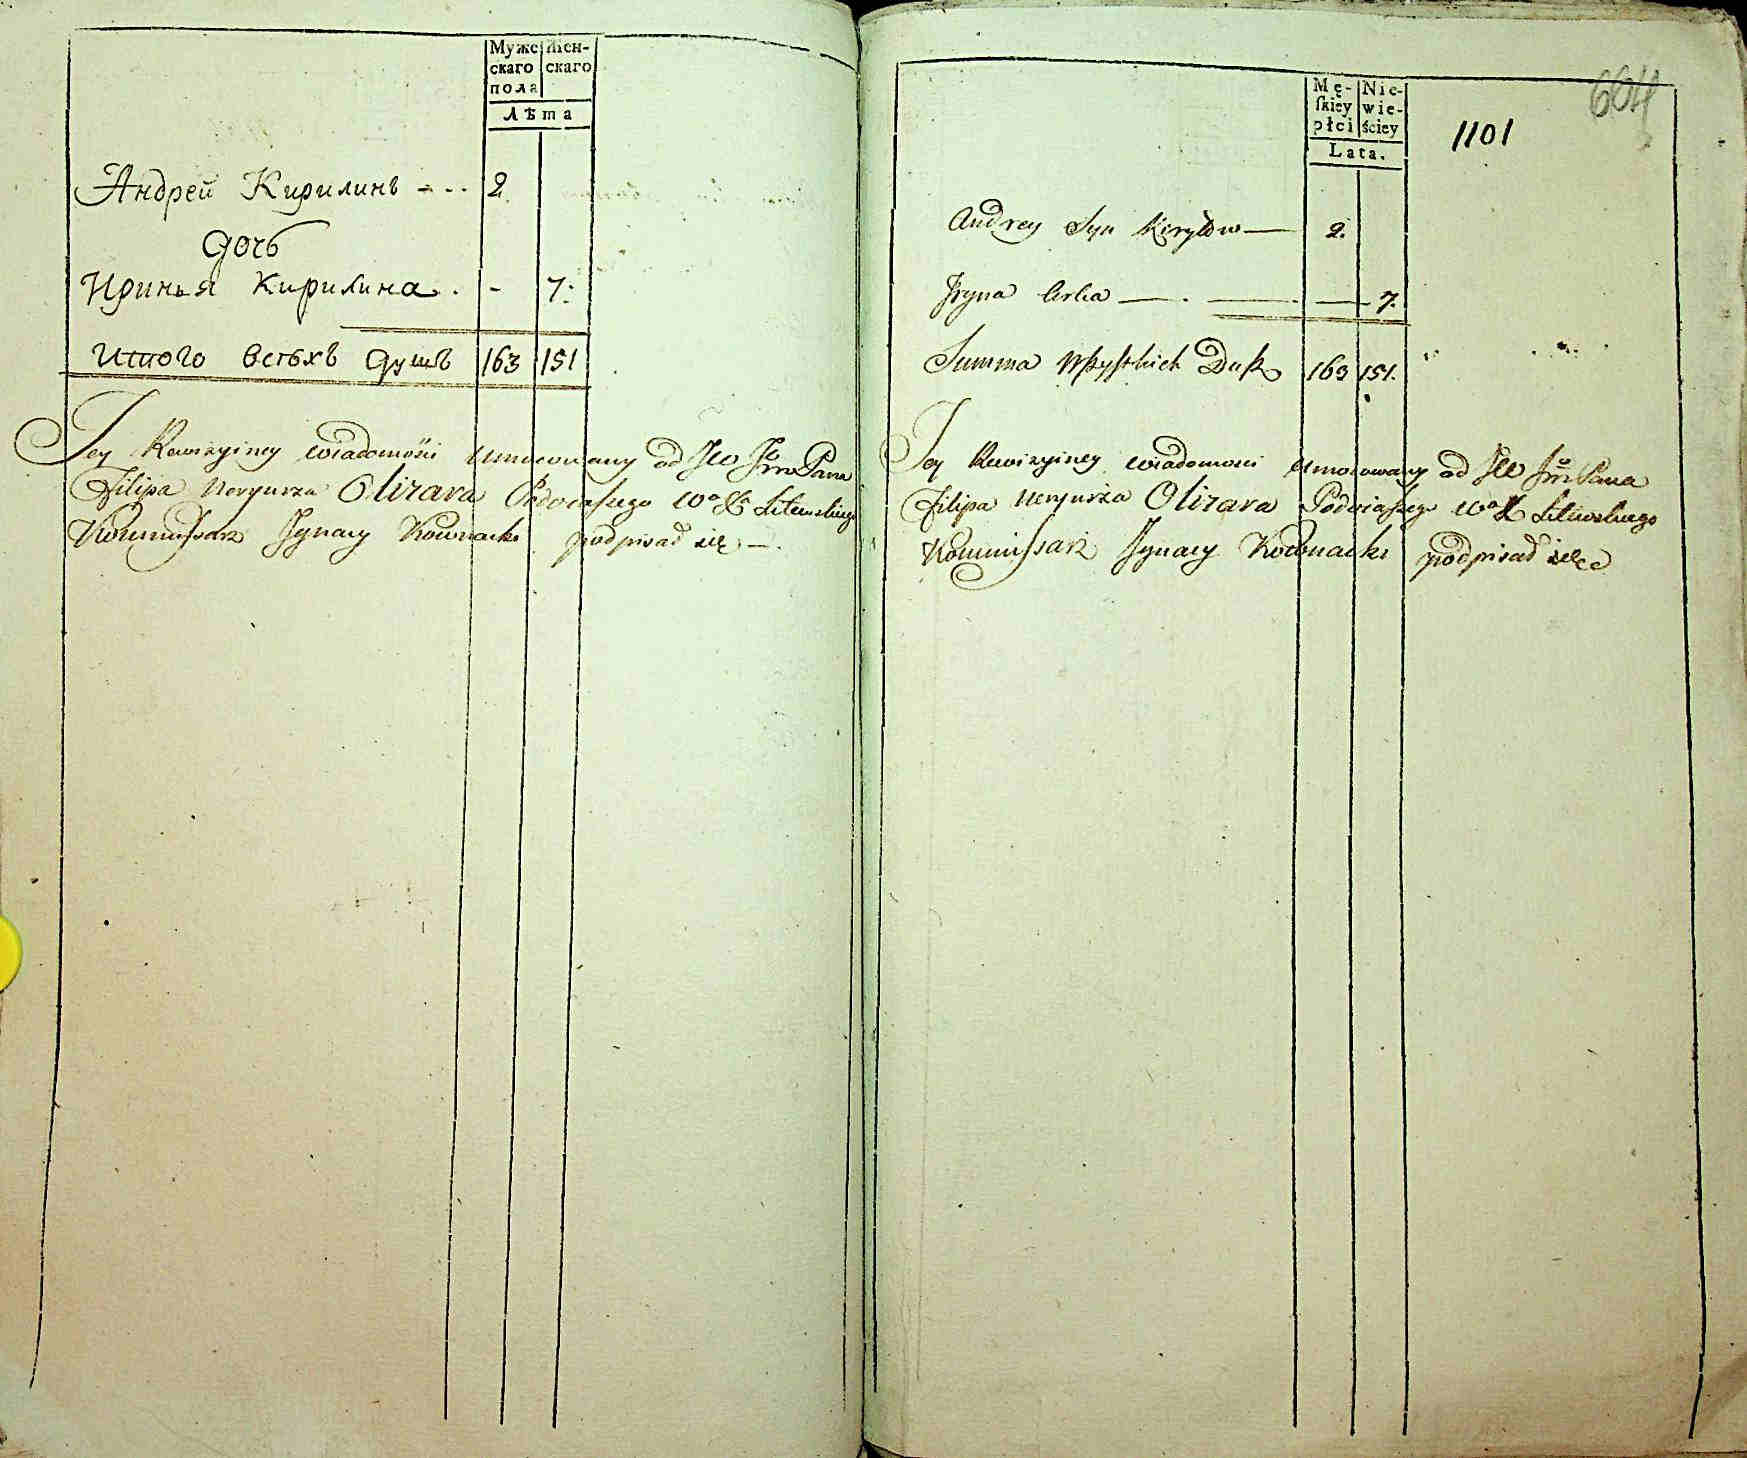 Муже скаго пола
Женскаго
Лѣта
Андрей Кирилинъ - - - 2.
Дочь
Иринья Кирилина . - 7.
Итого всѣхъ душъ 163 151
Tey Rewizyiney wiadomości umocowany od JW Jmo Pana
Filipa Neryusza Olizara Podczaszego Wo X Litewskiego
Kommissarz Ignacy Kownacki podpisał się —.
Mę-skiey płci
Nie-wie-ściey
Lata.
1101
604
Andrey Syn Kiryłow — 2.
Jryna Corka — . — 7.
Summa Wszystkich Dusz 163 151.
Tey Rewizyiney wiadomosci umocowany od JW Jmo Pana
Filipa Neryusza Olizara Podczaszego Wo X Litewskiego
Kommissarz Ignacy Kownacki podpisał się